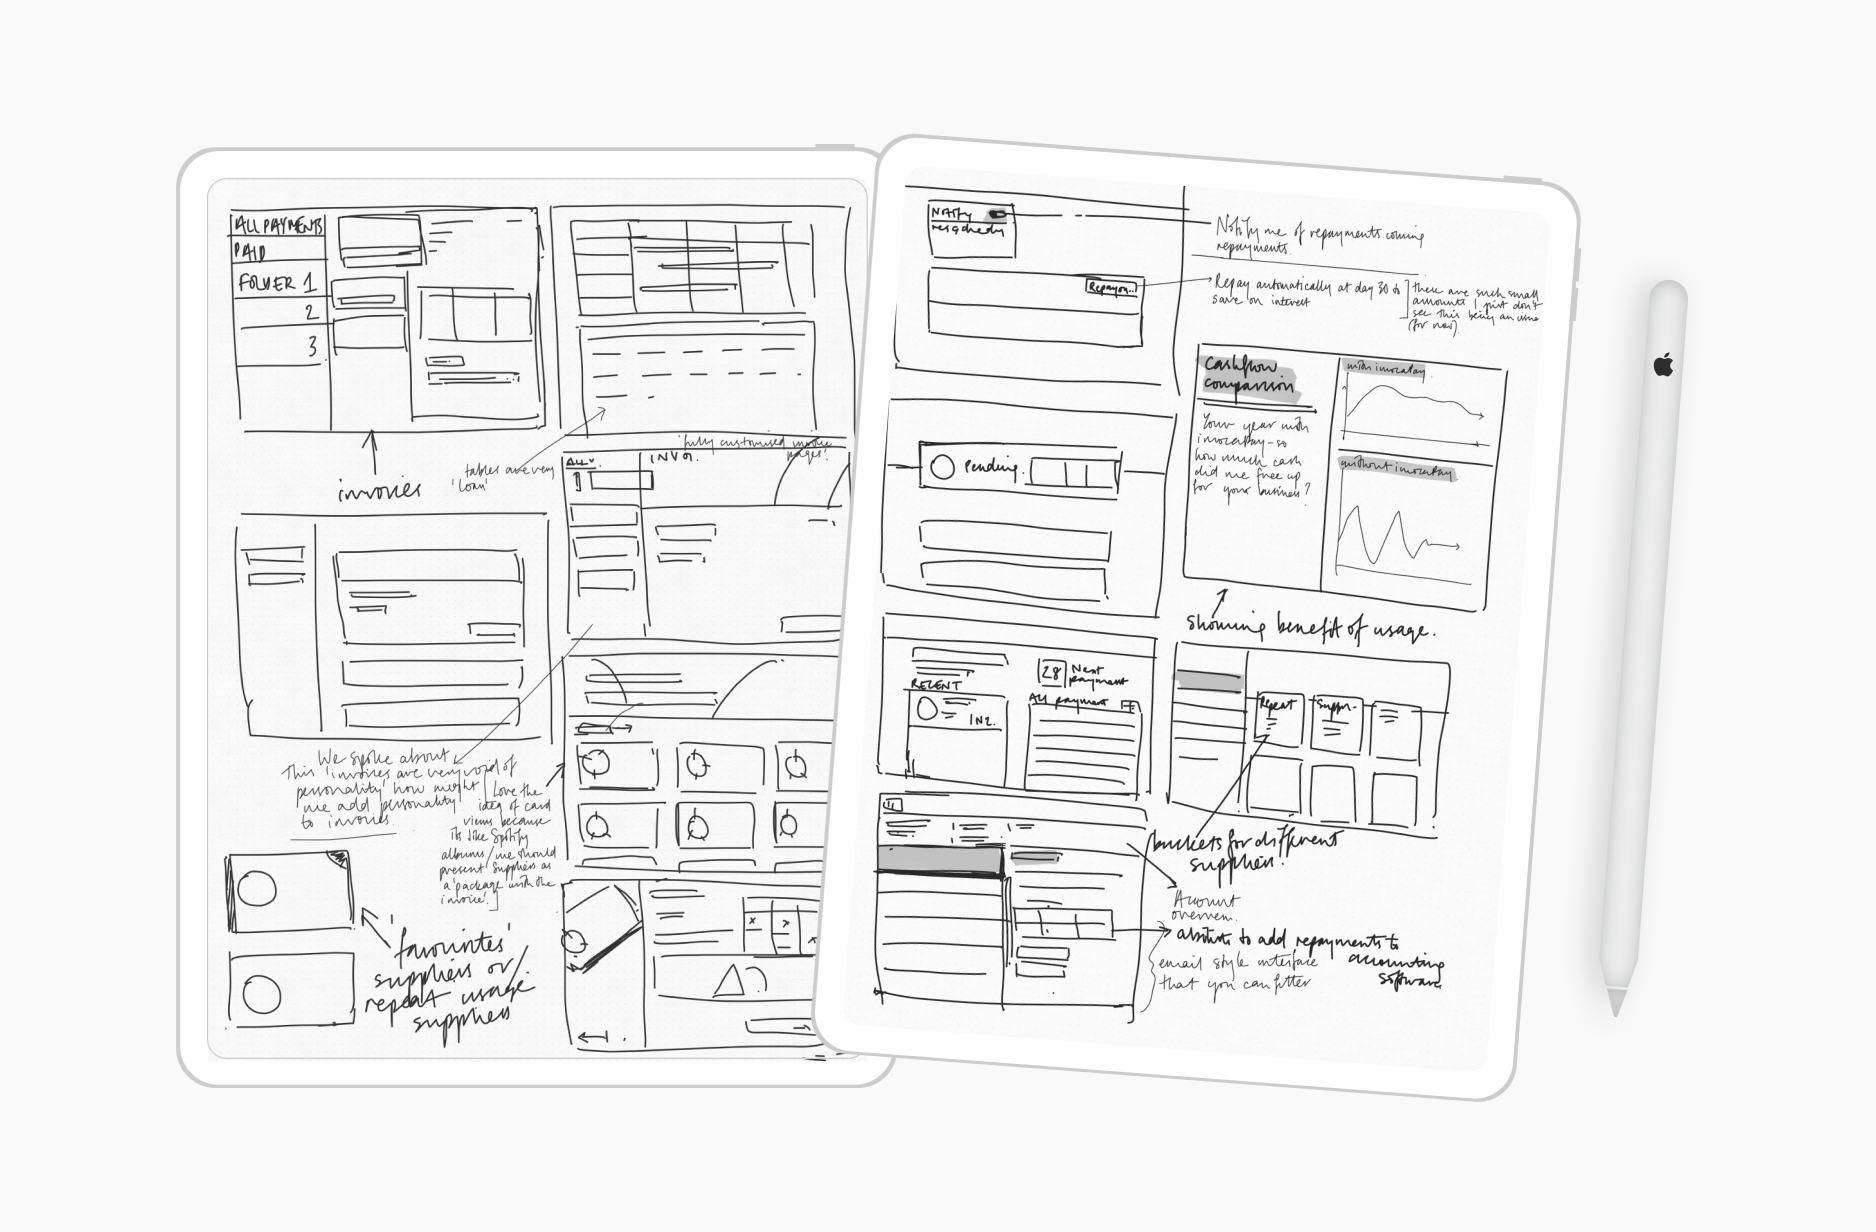 ALL PAYMENTS
PAID
FOLDER 1
2
3
invoices
tables are very
'loan'
'fully customised invoice
pages'
ALL
INVOI.
We spoke about
this 'invoices are very void of
personality' how might
we add personality
to invoices.
[Love the
idea of card
views because
its like Spotify
albums/we should
present suppliers as
a 'package' with the
invoice.]
'favourites'
suppliers or/
repeat usage
suppliers
Notify
Notify me of repayments coming
repayments.
Repay on..
Repay automatically at day 30 to
save on interest
there are such small
amounts I just don't
see this being an issue
(for now).
Cashflow
comparison
Your year with
invocapay - so
how much cash
did we free up
for your business?
with invocapay
without invocapay
showing benefit of usage.
Pending.
RECENT
IN2.
28
Next
payment
All payment
Repeat
Suppr-
buckets for different
suppliers.
Account
overview.
to add repayments to
accounting
software
email style interface
that you can filter